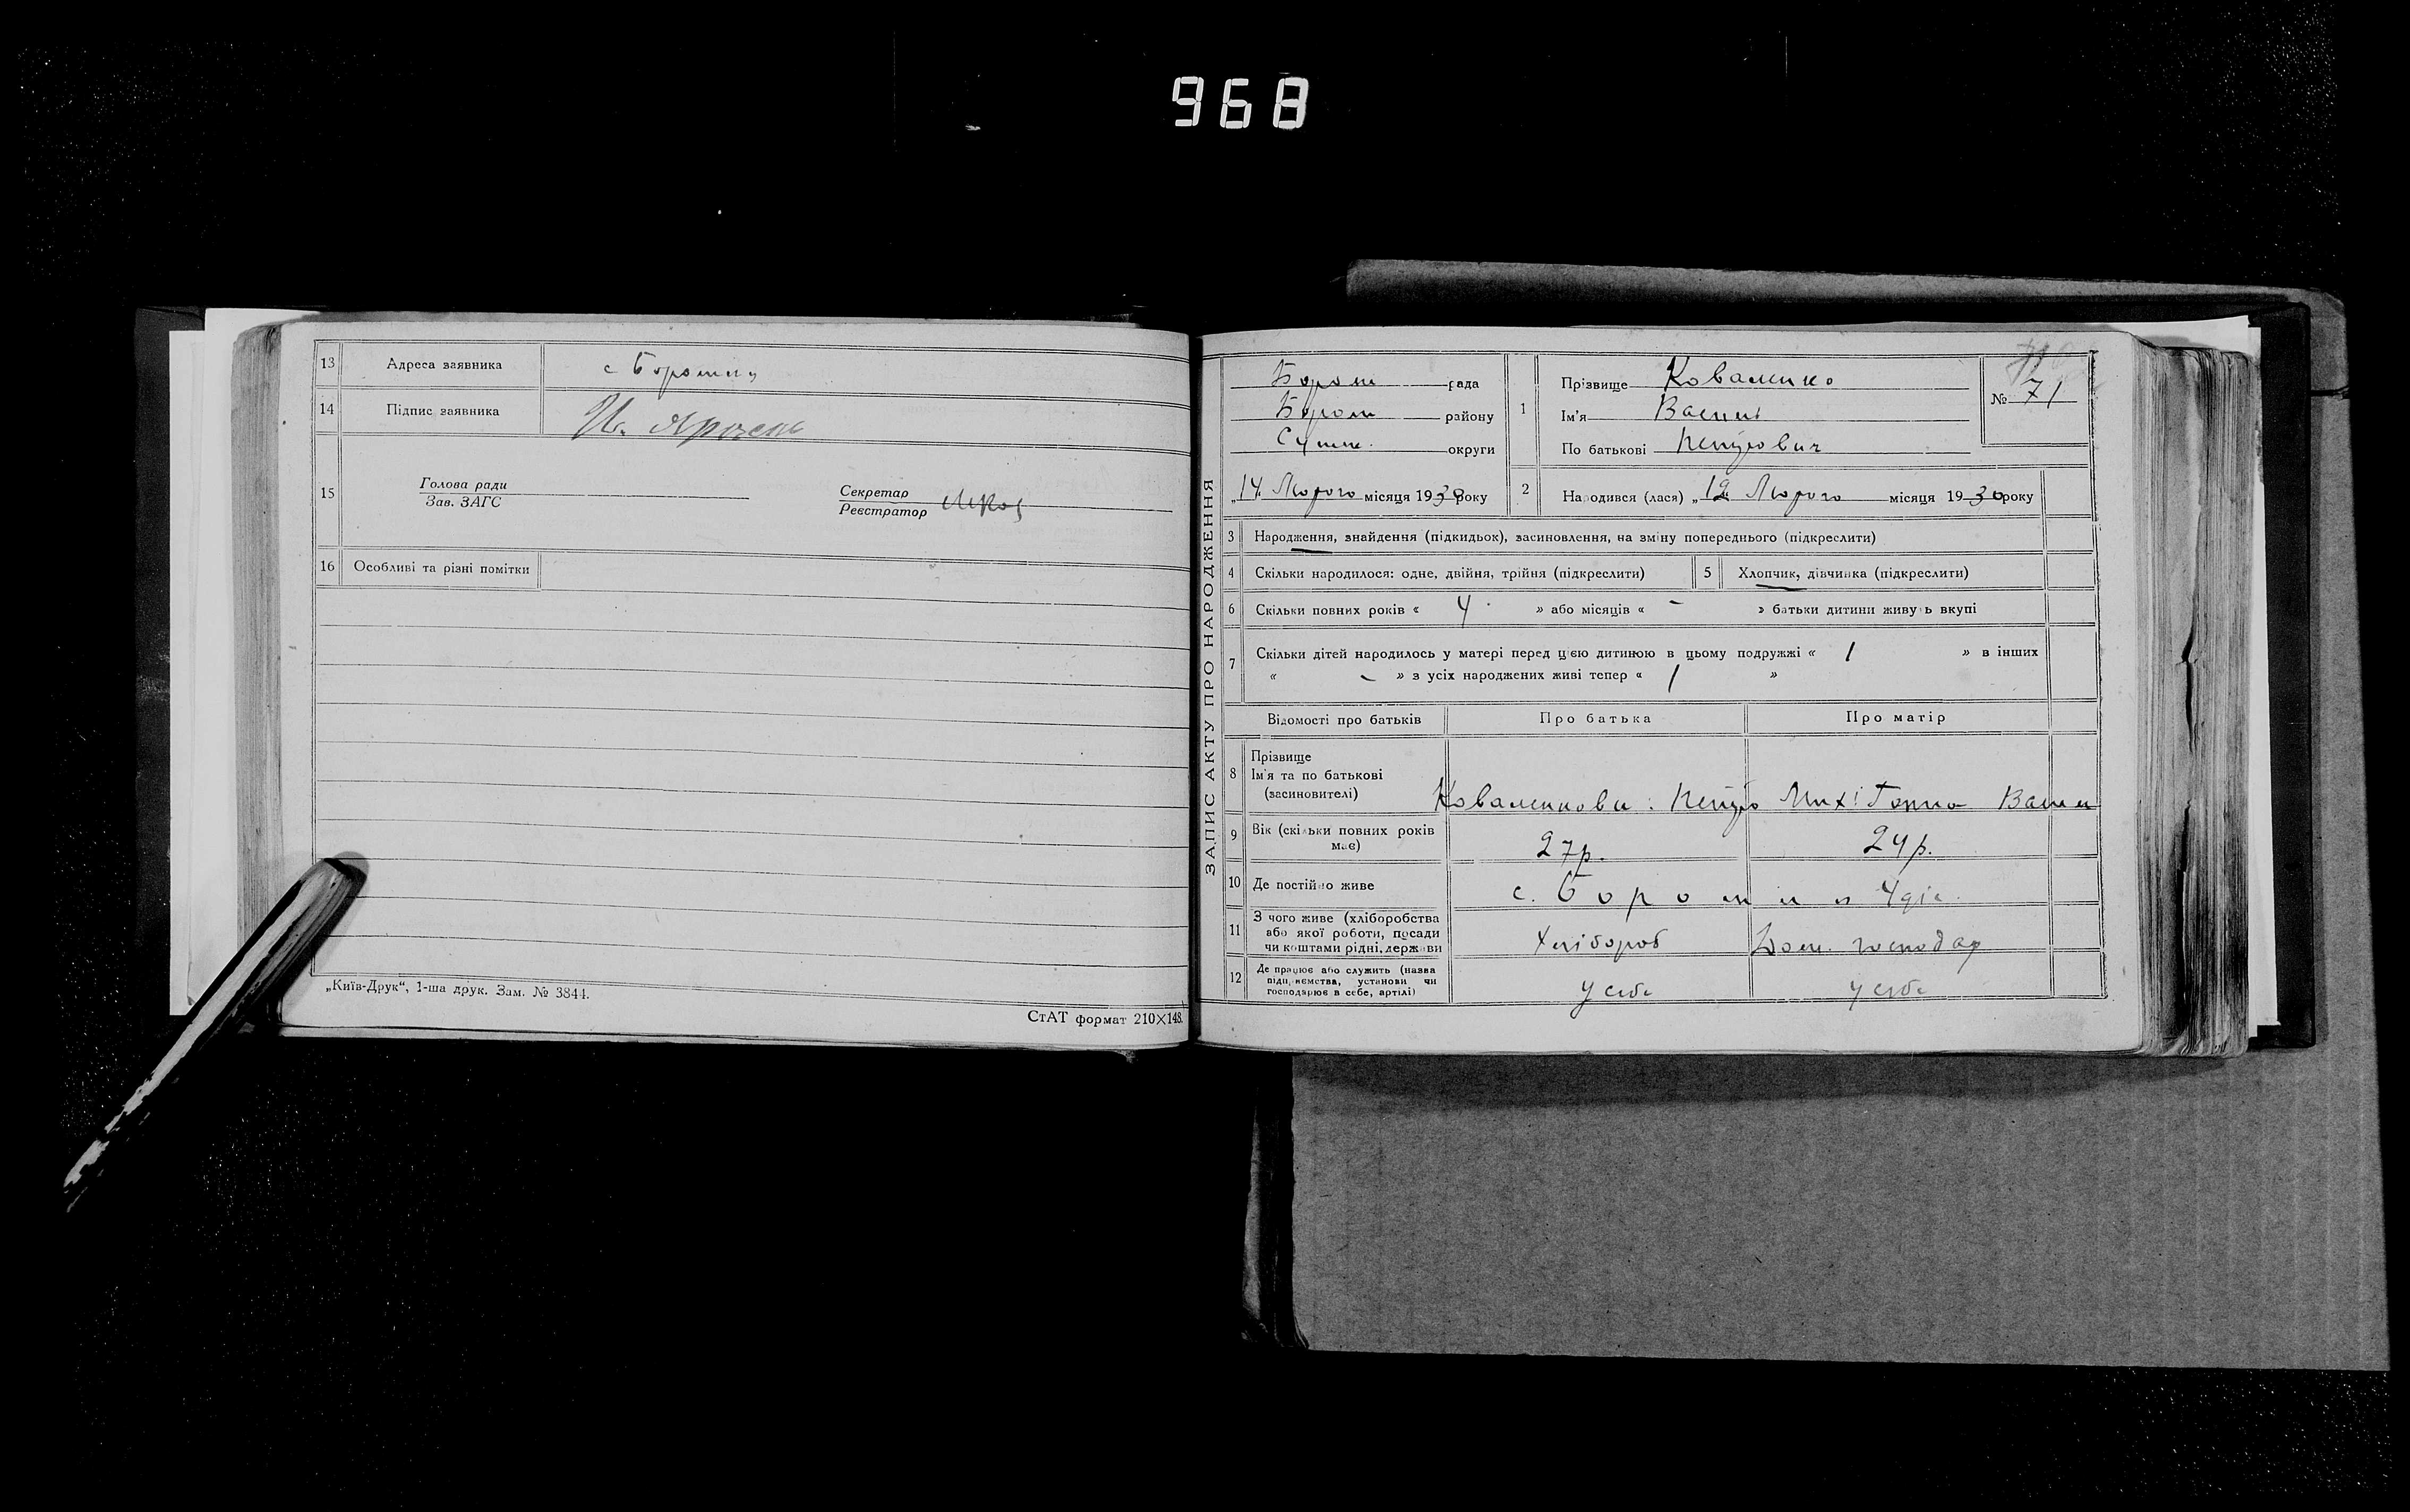 968
13 Адреса заявника с Боромня
14 Підпис заявника
15 Голова ради
Зав. ЗАГС
Секретар
Реєстратор
16 Особливі та різні помітки
„Київ-Друк“, 1-ша друк. Зам. № 3844.
СтАТ формат 210×148.
ЗАПИС АКТУ ПРО НАРОДЖЕННЯ
Бором рада
Бором району
Сумк. округи
„14 Лютого місяця 1930 року
1 Прізвище Коваленко
Ім'я Василь
По батькові Петрович
№ 71
2 Народився (лася) „12 Лютого місяця 1930 року
3 Народження, знайдення (підкидьок), засиновлення, на зміну попереднього (підкреслити)
4 Скільки народилося: одне, двійня, трійня (підкреслити)
5 Хлопчик, дівчинка (підкреслити)
6 Скільки повних років « 4 » або місяців « - » батьки дитини живуть вкупі
7 Скільки дітей народилось у матері перед цією дитиною в цьому подружжі « 1 » в інших
« - » з усіх народжених живі тепер « 1 »
Відомості про батьків Про батька Про матір
8 Прізвище
Ім'я та по батькові
(засиновителі)
Коваленкови: Петро Мих: Ганна Васил
9 Вік (скільки повних років
має)
27р. 24р.
10 Де постійно живе с. Боромня
11 З чого живе (хліборобства
або якої роботи, посади
чи коштами рідні, держави
Хлібороб Дом. господар
12 Де працює або служить (назва
підприємства, установи чи
господарює в себе, артілі)
у себе у себе